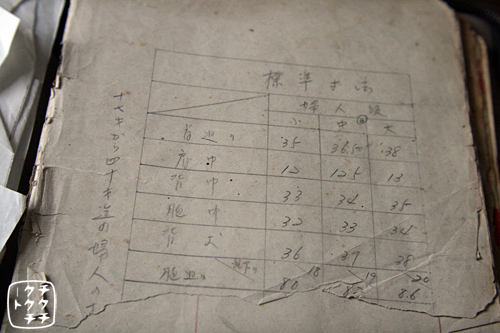 標準寸法
婦人服
小 中 大
背丈 35 36.5 38
肩巾 12 12.5 13
背巾 33 34 35
胸巾 32 33 34
36 37 38
18 19 20
80 8.6
十七才から四十才迄の婦人の
チクチク
トクチチ